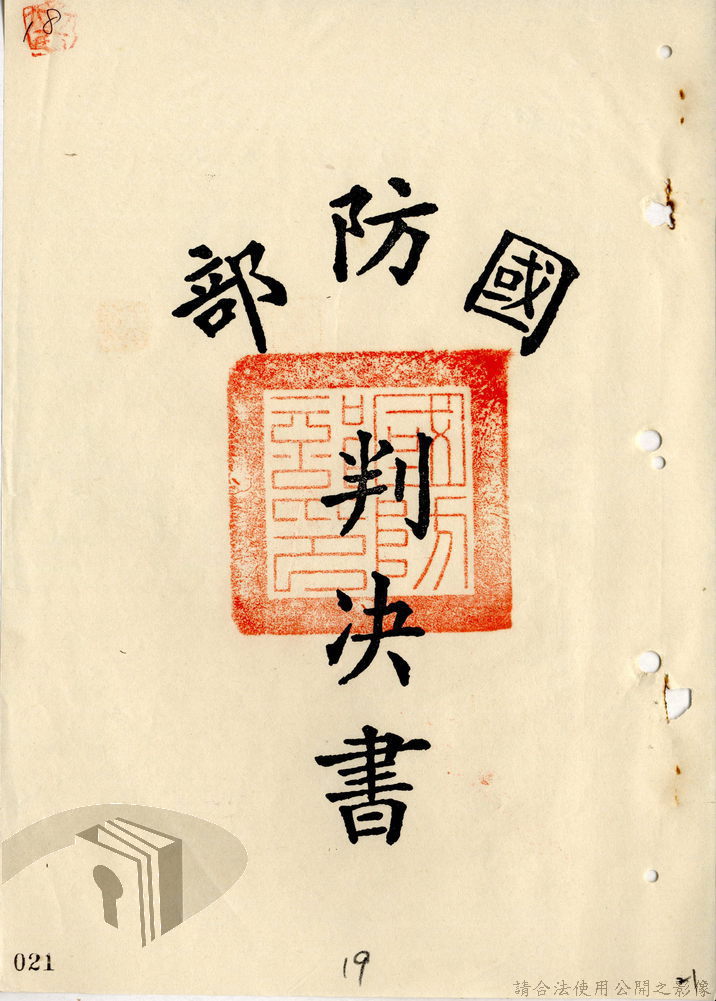 18
國防部
國防部印
判決書
021
19
21
請合法使用公開之影像